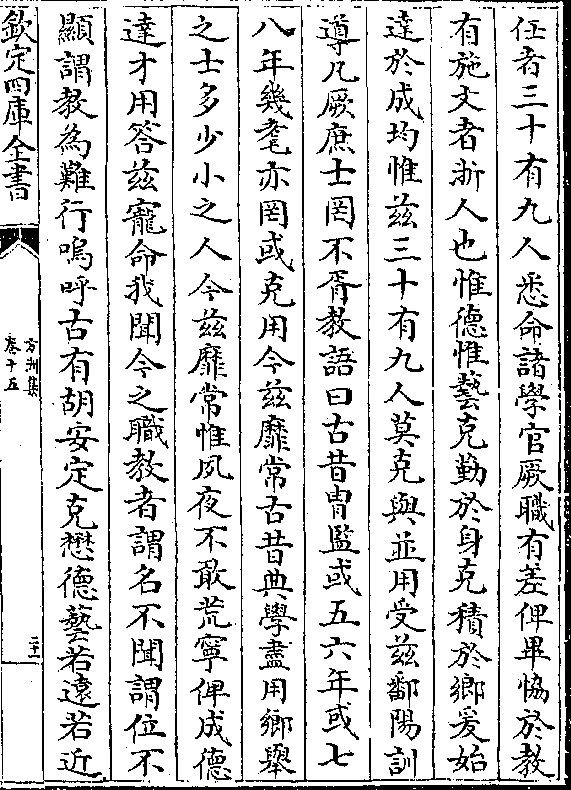 任者三十有九人悉命諸學官厥職有差俾畢恊於教
有施文者浙人也惟德惟藝克勤於身克積於鄉爰始
達於成均惟兹三十有九人莫克與並用受兹鄱陽訓
導凡厥庶士罔不胥教語曰古昔胄監或五六年或七
八年幾耄亦罔或克用今兹靡常古昔典學盡用鄉舉
之士多少小之人今兹靡常惟夙夜不敢荒寧俾成德
達才用答兹寵命我聞今之職教者謂名不聞謂位不
顯謂教為難行嗚呼古有胡安定克懋德藝若遠若近
欽定四庫全書
方洲集
卷十五
二十一